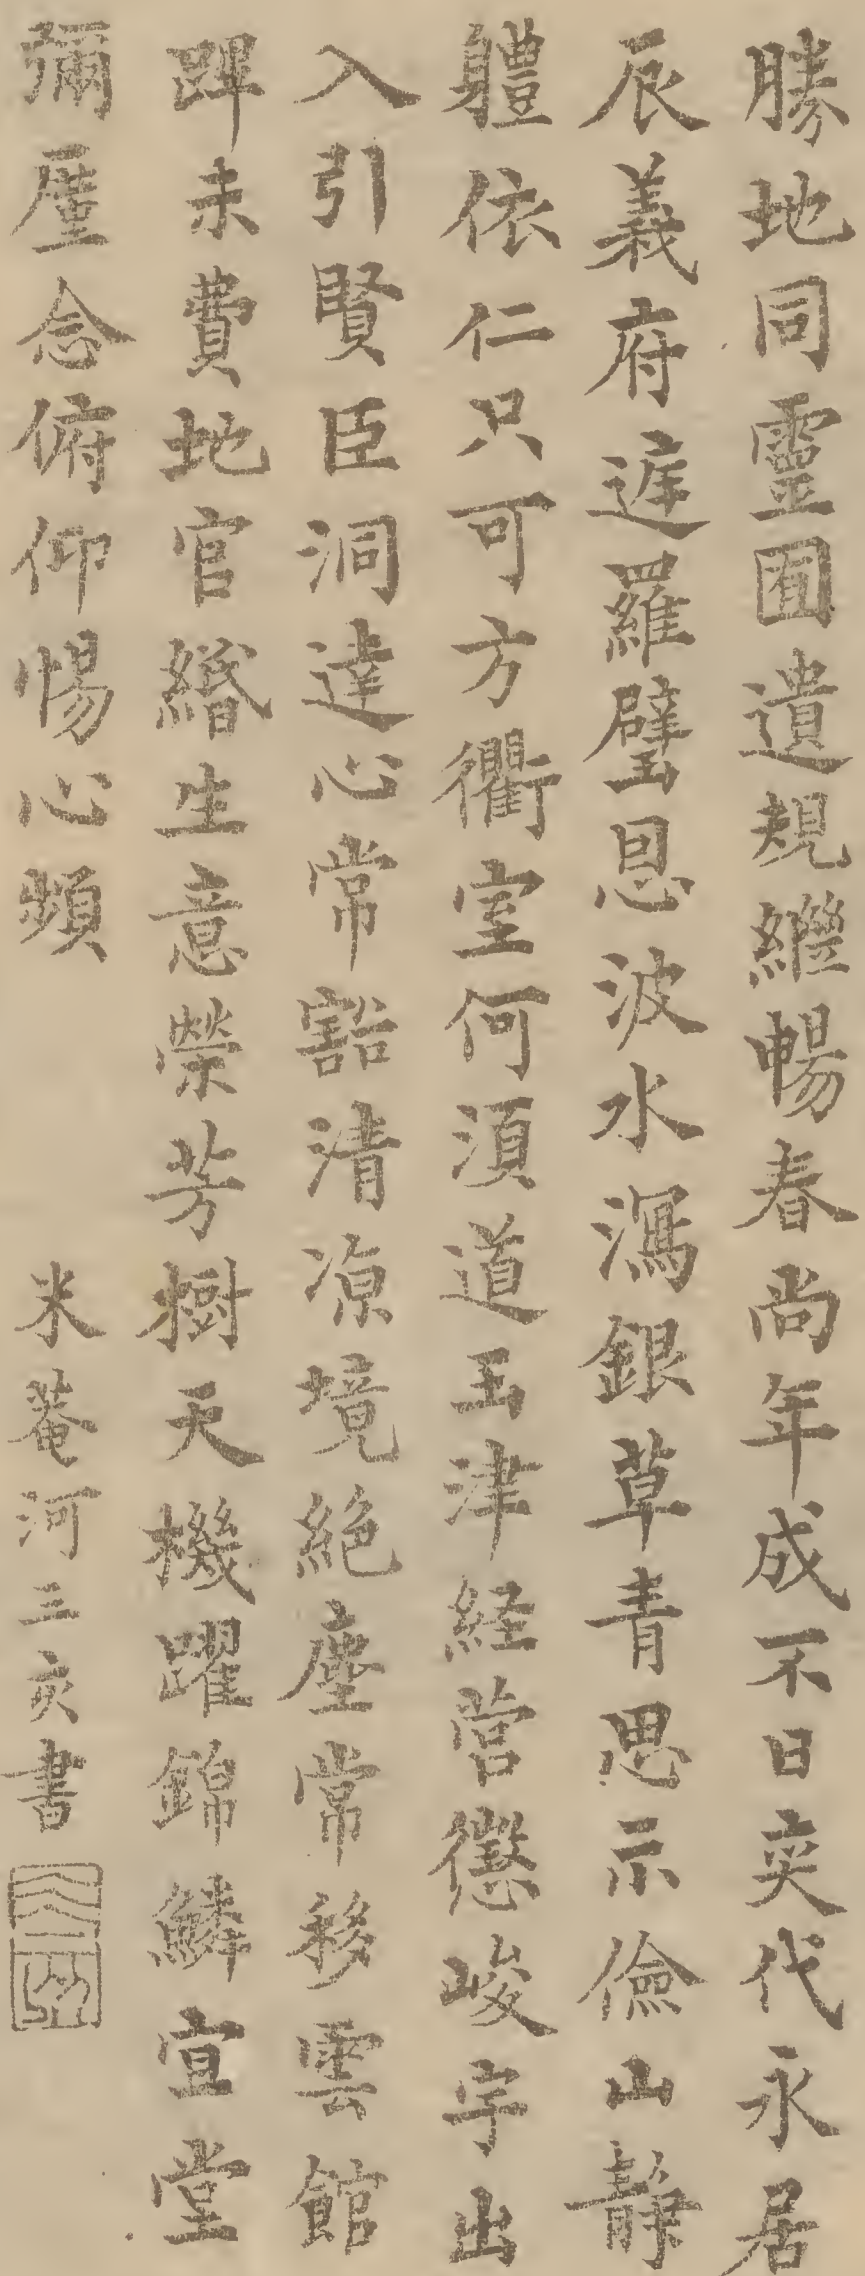 勝地同靈囿遺規繼暢春尚年成不日奕代永居
辰義府遲羅璧恩波水瀉銀草青思示儉山靜
軆依仁只可方衢室何須道玉津経営懲峻宇出
入引賢臣洞達心常豁清凉境絶塵常移雲館
蹕未費地官緡生意榮芳樹天機躍錦鱗宜堂
彌厪念俯仰惕心頻
米菴河三亥書